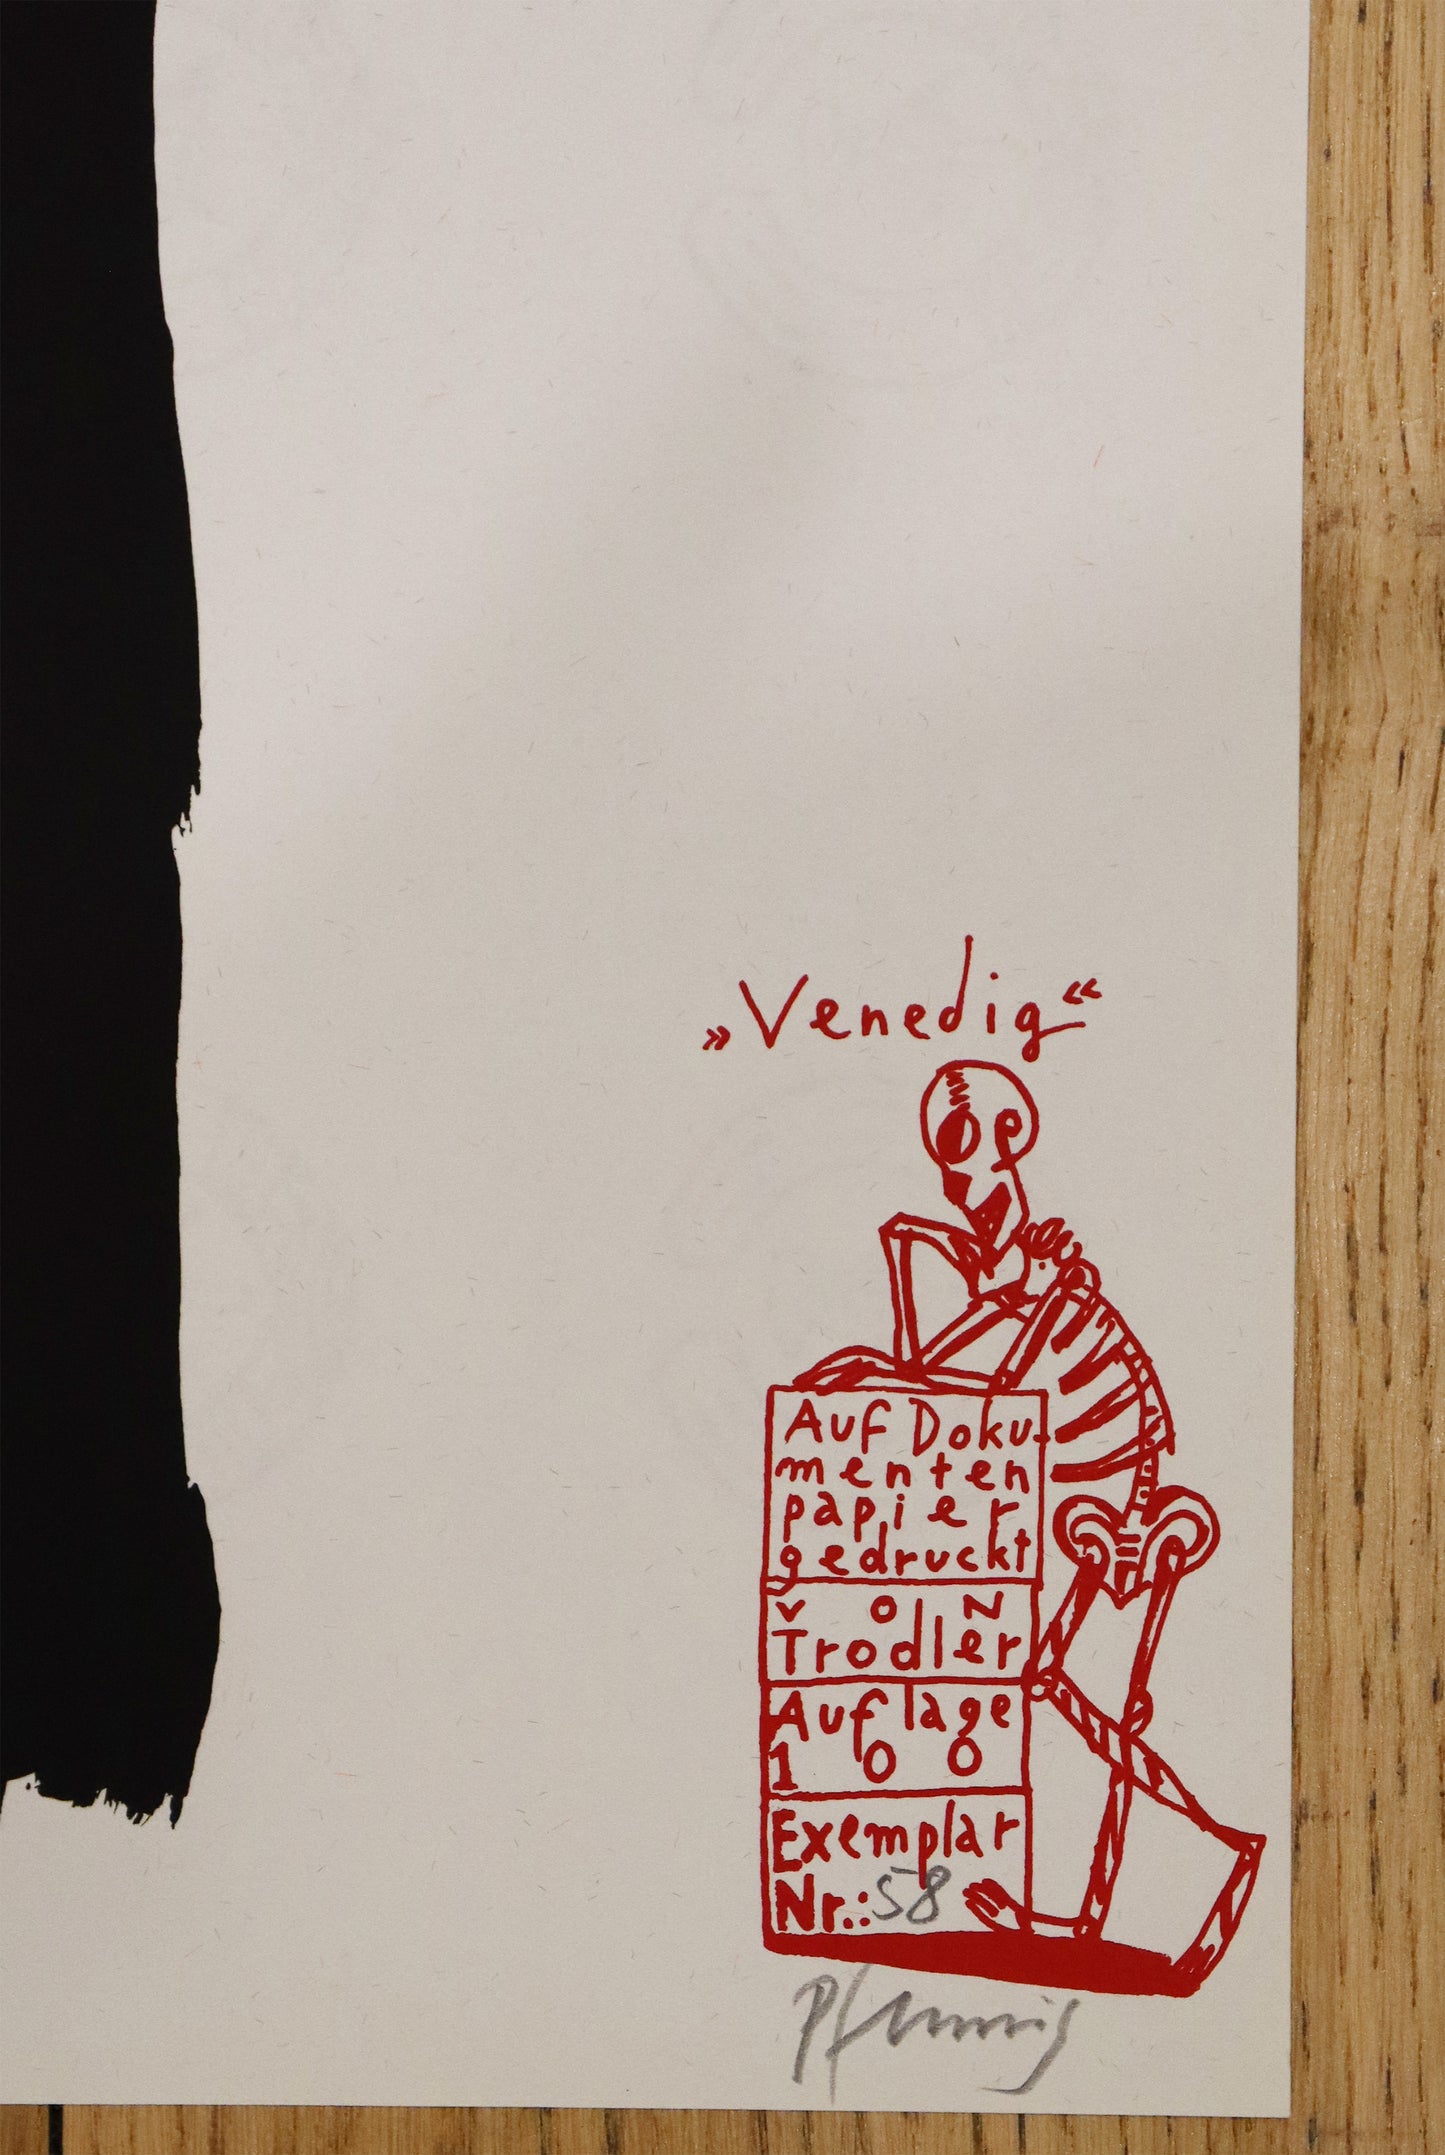 »Venedig«
Auf Doku-
menten
papier
gedruckt
von
Trodler
Auflage
100
Exemplar
Nr.: 58